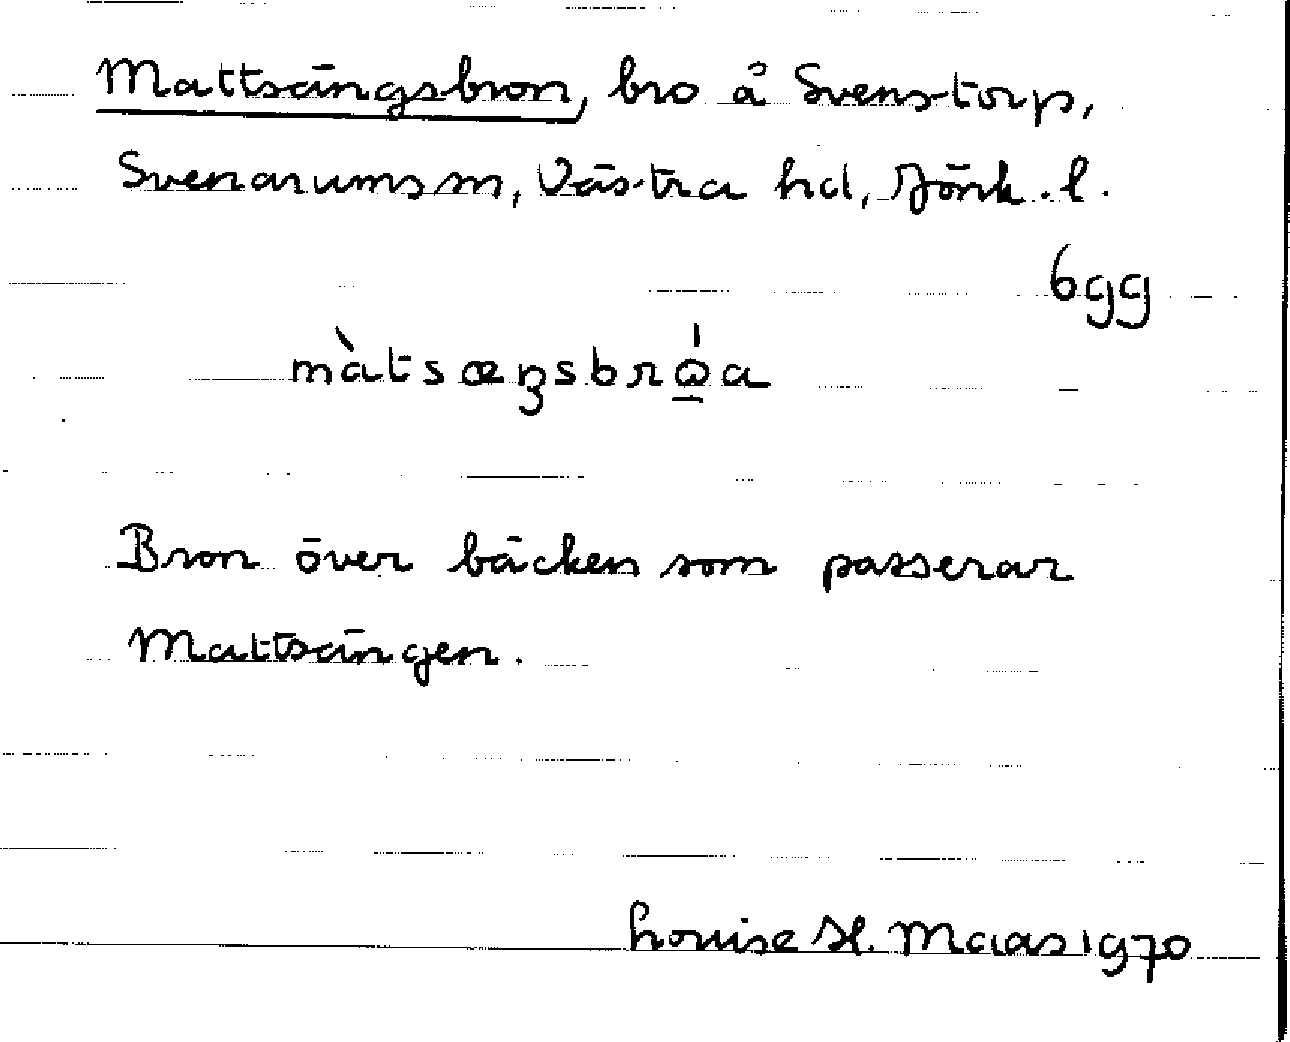 Mattsängsbron, bro å Svenstorp,
Svenarums sn, Västra hd, Jönk. l.
6gg
màtsæŋsbrώ̲a
Bron över bäcken som passerar
Mattsängen.
Louise H. Maas 1970